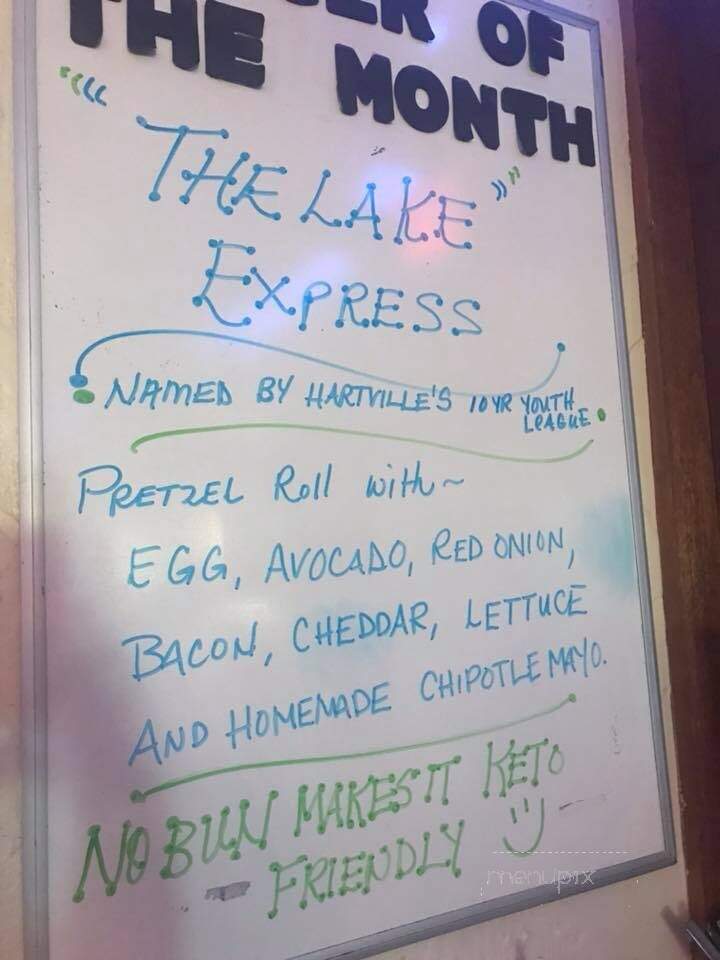 OF
THE MONTH
"THE LAKE"
EXPRESS
NAMED BY HARTVILLE'S 10 YR YOUTH
LEAGUE
PRETZEL Roll with~
EGG, AVOCADO, RED ONION,
BACON, CHEDDAR, LETTUCE
AND HOMEMADE CHIPOTLE MAYO.
NO BUN MAKES IT KETO
FRIENDLY
menupix